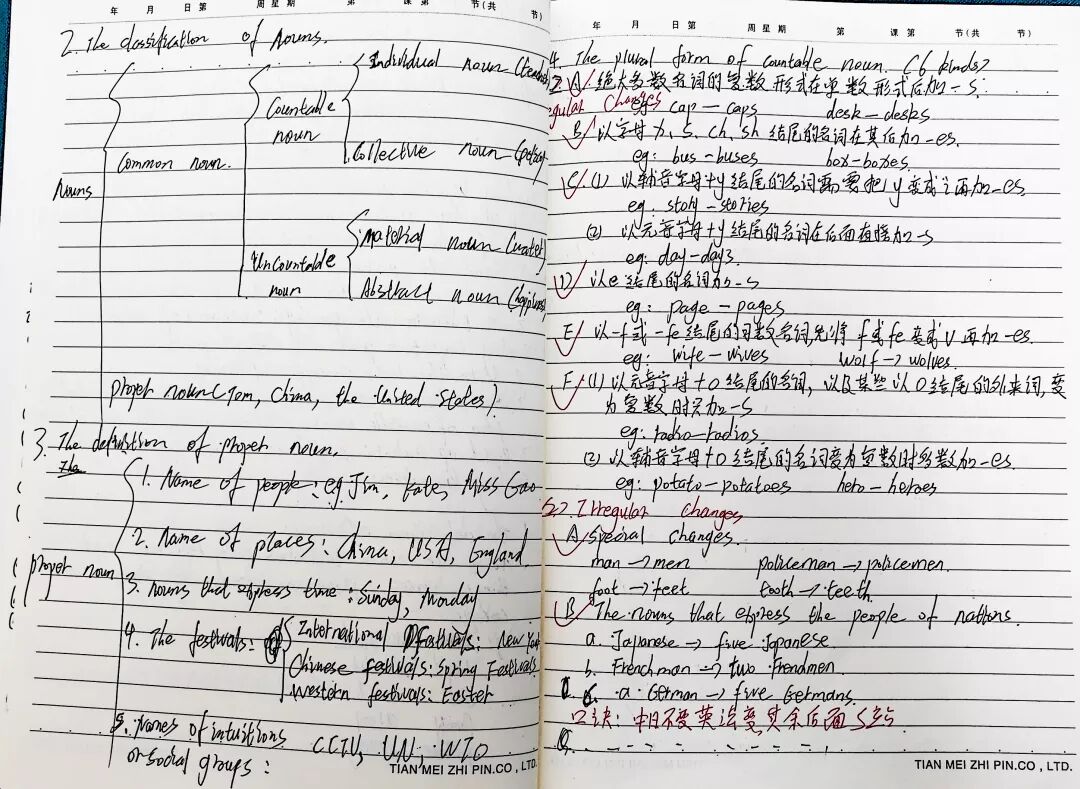 年 月 日 第 周 星 期 第 课 第 节(共 节)
2. The classification of Nouns.
Nouns
Common noun.
Countable noun
Individual noun (teacher
Collective noun
Uncountable noun
Material noun (water)
Abstract noun (happiness
proper noun (Tom, China, the United States)
3. The definition of proper noun.
The
proper noun
1. Name of people: eg. Jim, Kate, Miss Gao
2. Name of places: China, USA, England
3. nouns that express time: Sunday, Monday
4. The festivals:
International festivals: New Year
Chinese festivals: Spring Festivals
Western festivals: Easter
5. Names of intuitions or social groups: CCTV, UN, WTO
TIAN MEI ZHI PIN.CO., LTD.
年 月 日 第 周 星 期 第 课 第 节(共 节)
4. The plural form of countable noun. (6 kinds)
A. 绝大多数名词的复数形式在单数形式后加-s.
gular Changes
eg: cap—caps desk—desks
B. 以字母x, s, ch, sh结尾的名词在其后加-es.
eg: bus-buses box-boxes
C. (1) 以辅音字母+y结尾的名词需要把y变成i再加-es
eg. story-stories
(2) 以元音字母+y结尾的名词在后面直接加-s
eg: day-days
D 以e结尾的名词加-s
eg: page-pages
E 以-f或-fe结尾的可数名词,先将f或fe变成v再加-es.
eg: wife-wives wolf→wolves
F (1) 以元音字母+o结尾的名词,以及某些以o结尾的外来词,变
为复数时只加-s
eg: radio-radios
(2) 以辅音字母+o结尾的名词变为复数时多数加-es
eg: potato-potatoes hero-heroes
Irregular changes
A special changes.
man→men policeman→policemen.
foot→feet tooth→teeth
B The nouns that express the people of nations
a. Japanese→five Japanese
b. Frenchman→two Frenchmen
a German→five Germans
口诀: 中日不变英法变,其余后面s站
TIAN MEI ZHI PIN.CO., LTD.